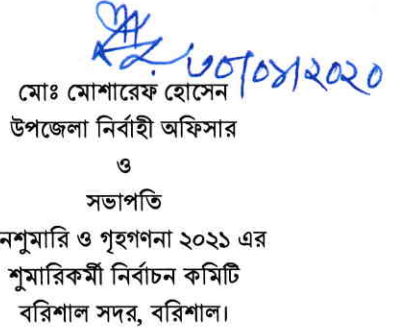 ৩০/০১/২০২০
মোঃ মোশারেফ হোসেন
উপজেলা নির্বাহী অফিসার
ও
সভাপতি
নশুমারি ও গৃহগণনা ২০২১ এর
শুমারিকর্মী নির্বাচন কমিটি
বরিশাল সদর, বরিশাল।